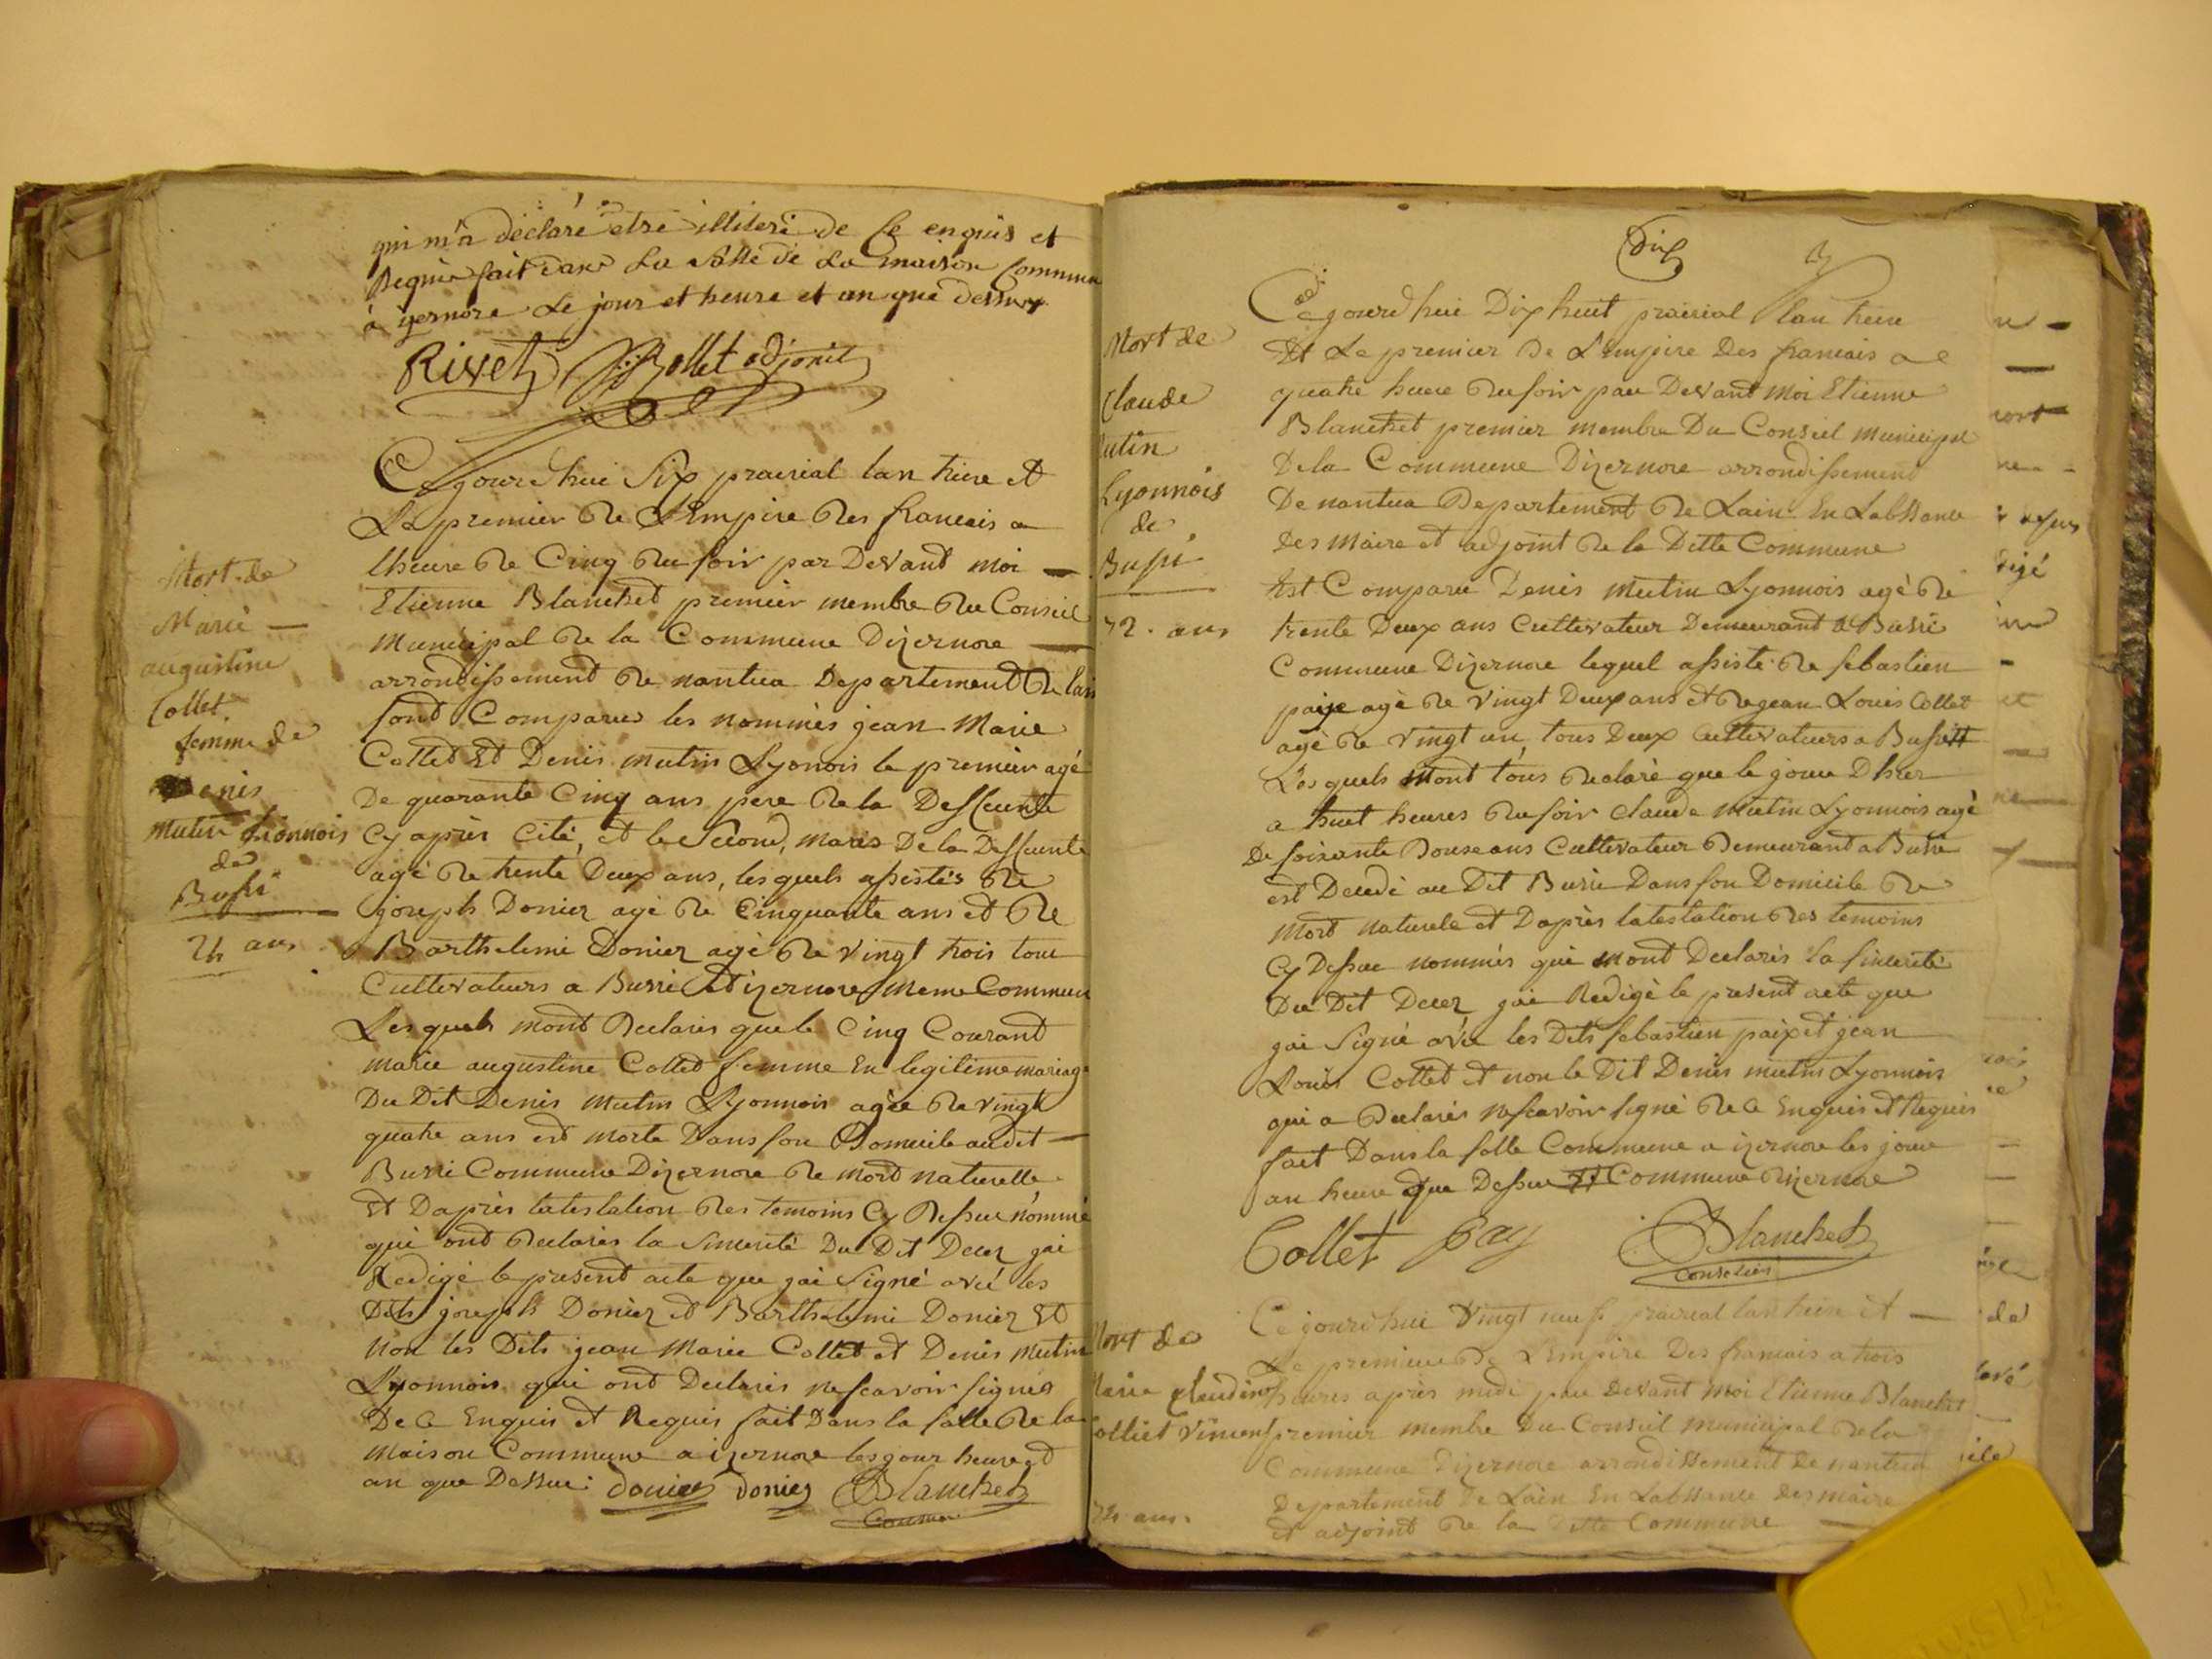 qui m'a déclaré etre illiteré de Ce enquis et
Requis fait dans La Salle de La maison Commune
à yernore Le jour et heure et an que dessus
Rivet Collet adjoint
Mort de
Marie
augustine
Collet
femme de
Denis
Mutin Lionnois
de
Bussi
24 ans
Cejourdhui Six prairial lan treize et
Le premier de L'Empire des francais a
lheure de Cinq du soir par Devant moi
Etienne Blanchet premier membre du Conseil
Municipal de la Commune Dizernore
arrondissement de nantua Departement de lain
sont Comparus les nommés jean Marie
Collet Et Denis mutin Lyonois le premier agé
De quarante Cinq ans pere de la Deffunte
Cy après Cité, et le Second, maris De la Deffunte
agé de trente Deux ans, lesquels assistés de
joseph Donier agé de Cinquante ans et de
Barthelemi Donier agé de vingt trois tous
Cultivateurs a Bussi et izernore meme Commune
Lesquels mont Declarés que le Cinq Courant
marie augustine Collet femme En legitime mariage
Du Dit Denis Mutin Lyonnois agée de vingt
quatre ans est morte Dans son Domicile audit
Bussi Commune Dizernore de mort naturelle
Et Daprès latestation des temoins Cy Dessus nommé
qui ont declarés la Sincerité Du Dit Deces jai
Redigé le present acte que jai Signé avec les
Dits joseph Donier et Barthelemi Donier Et
Non les Dits jean Marie Collet et Denis Mutin
Lyonnois qui ont Declarés ne scavoir signés
De Ce Enquis et Requis fait Dans la salle de la
Maison Commune a izernore les jour heure et
an que Dessus: donier donier Blanchet
Conseiller
Dix
Mort de
Claude
Mutin
Lyonnois
de
Bussi
72. ans
Cejourdhui Dix huit prairial lan treize
Et Le premier De L'Empire Des francais a
quatre heure du soir par Devant Moi Etienne
Blanchet premier membre Du Conseil Municipal
De la Commune Dizernore arrondissement
De nantua Departement de Lain En Labssance
Des Maire et adjoint de la Ditte Commune
Est Comparu Denis mutin Lyonnois agé de
trente Deux ans Cultivateur Demeurant a Bussi
Commune Dizernore lequel assisté de sebastien
paix agé de vingt Deux ans et de jean Louis Collet
agé de vingt un, tous Deux Cultivateurs a Bussi
Lesquels Mont tous declaré que le jour Dhier
a huit heures du soir claude Mutin Lyonnois agé
De soixante Douse ans Cultivateur Demeurant a Bussi
est Decedé au Dit Bussi Dans son Domicile de
Mort Naturele et Daprès latestation des temoins
Cy Dessus nommés qui Mont Declarés la sincerité
Du Dit Decez jai Redigé le present acte que
jai Signé avec les Dits sebastien paix et jean
Louis Collet et non le Dit Denis mutin Lyonnois
qui a declarés ne scavoir signé de Ce Enquis et Requis
fait Dans la salle Commune a izernore les jour
an heure que Dessus Commune Dizernore
Collet pay Blanchet
Conseiller
Mort de
Marie Claudine
Colliet Vincent
Cejourdhui Vingt neuf prairial lan treize et
Le premier de L'Empire Des francais a trois
heures après midi par devant moi Etienne Blanchet
premier membre Du Conseil municipal de la
Commune Dizernore arrondissement De nantua
Departement De Lain En Labssance Des maire
et adjoint de la Ditte Commune